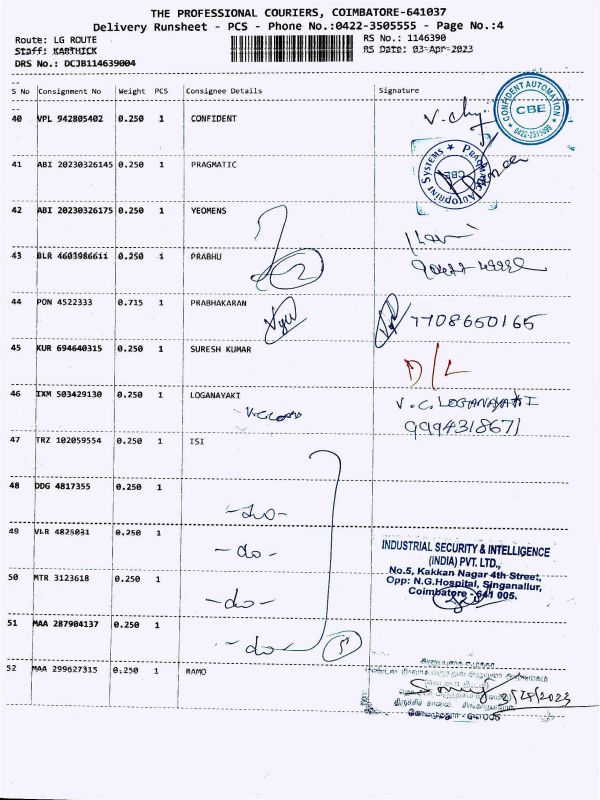 THE PROFESSIONAL COURIERS, COIMBATORE-641037
Delivery Runsheet - PCS - Phone No.:0422-3505555 - Page No.:4
Route: LG ROUTE
RS No.: 1146390
Staff: KARTHICK
RS Date: 03-Apr-2023
DRS No.: DCJB114639004
S No Consignment No Weight PCS Consignee Details Signature
40 VPL 942805402 0.250 1 CONFIDENT V. Chy
CONFIDENT AUTOMATION
CBE
0422-2615099
41 ABI 20230326145 0.250 1 PRAGMATIC
Autoprint Systems
CBE
42 ABI 20230326175 0.250 1 YEOMENS
43 BLR 4603986611 0.250 1 PRABHU
2
44 PON 4522333 0.715 1 PRABHAKARAN 7708650165
45 KUR 694640315 0.250 1 SURESH KUMAR D/L
46 IXM 503429130 0.250 1 LOGANAYAKI V.C. LOGANAYAKI
9994318671
47 TRZ 102059554 0.250 1 ISI
48 DDG 4817355 0.250 1 -do-
49 VLR 4825031 0.250 1 -do-
INDUSTRIAL SECURITY & INTELLIGENCE
(INDIA) PVT. LTD.,
No.5, Kakkan Nagar 4th Street,
Opp: N.G.Hospital, Singanallur,
Coimbatore - 641 005.
50 MTR 3123618 0.250 1 -do-
51 MAA 287904137 0.250 1 -do- 5
52 MAA 299627315 0.250 1 RAMO
3/4/2023